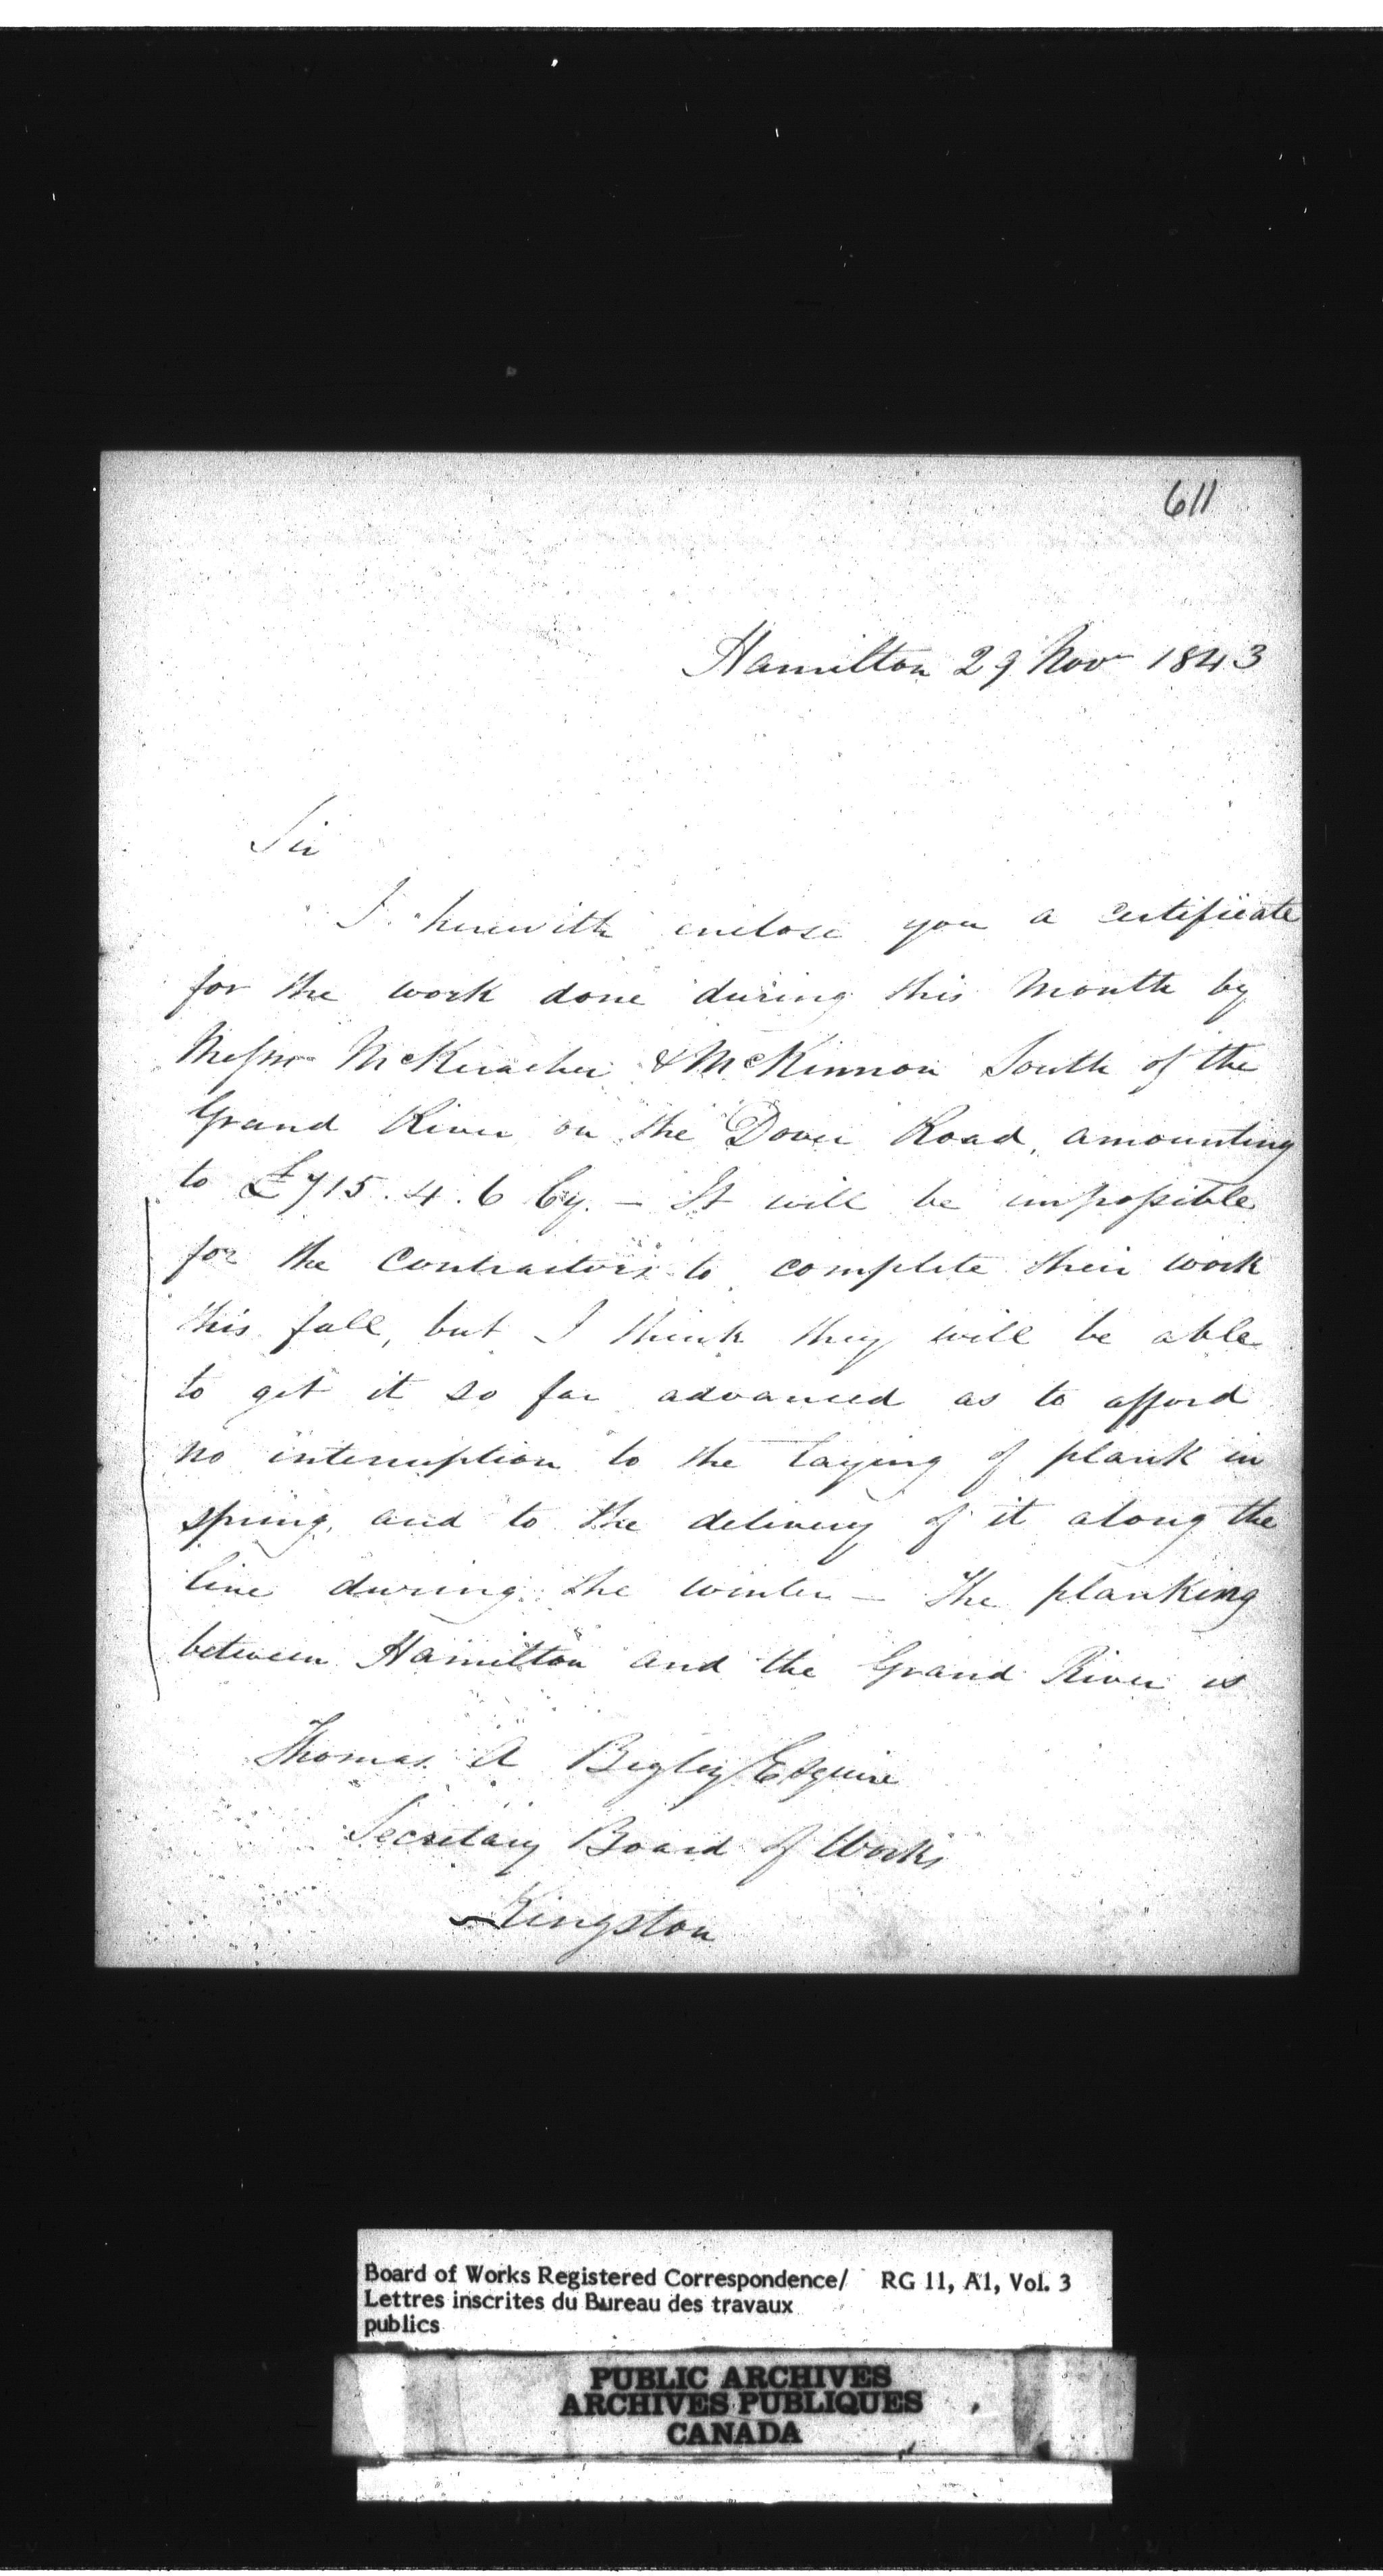 611
Hamilton 29 Nov 1843
Sir
I herewith enclose you a certificate
for the work done during this Month by
Messrs McKerracher & McKinnon South of the
Grand River on the Dover Road, amounting
to £715.4.6 Cy. – It will be impossible
for the Contractors to complete their work
this fall, but I think they will be able
to get it so far advanced as to afford
no interruption to the laying of plank in
spring, and to the delivery of it along the
line during the winter – The planking
between Hamilton and the Grand River is
Thomas A Begley Esquire
Secretary Board of Works
Kingston
Board of Works Registered Correspondence/ RG 11, A1, Vol. 3
Lettres inscrites du Bureau des travaux
publics
PUBLIC ARCHIVES
ARCHIVES PUBLIQUES
CANADA